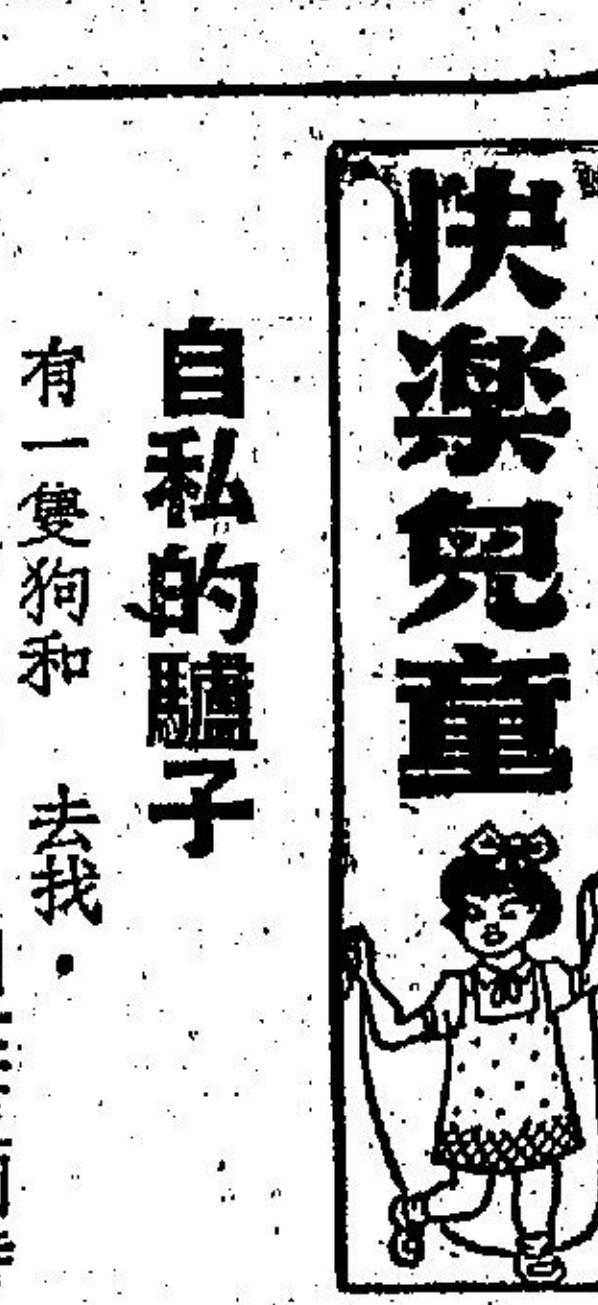 快楽兒童
自私的驢子
有一隻狗和
去找．